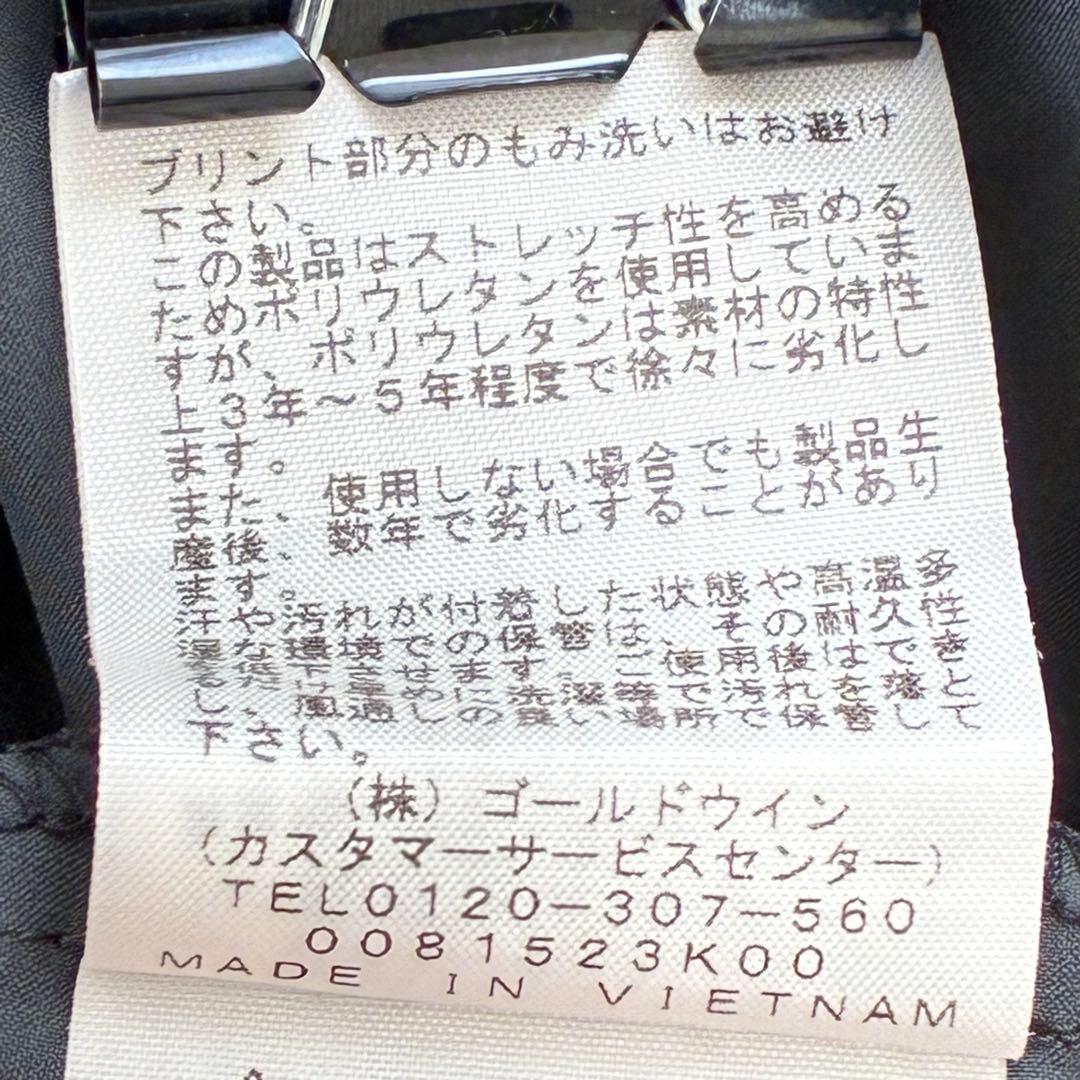 プリント部分のもみ洗いはお避け
下さい。
この製品はストレッチ性を高める
ためポリウレタンを使用していま
すが、ポリウレタンは素材の特性
上3年～5年程度で徐々に劣化し
ます。
また、使用しない場合でも製品生
産後、数年で劣化することがあり
ます。
汗や汚れが付着した状態や高温多
湿な環境での保管は、その耐久性
使用後はでき
汚れを落と
し 風通し 所で保管して
下さい。
(株)ゴールドウイン
(カスタマーサービスセンター)
TEL0120-307-560
0081523K00
MADE IN VIETNAM